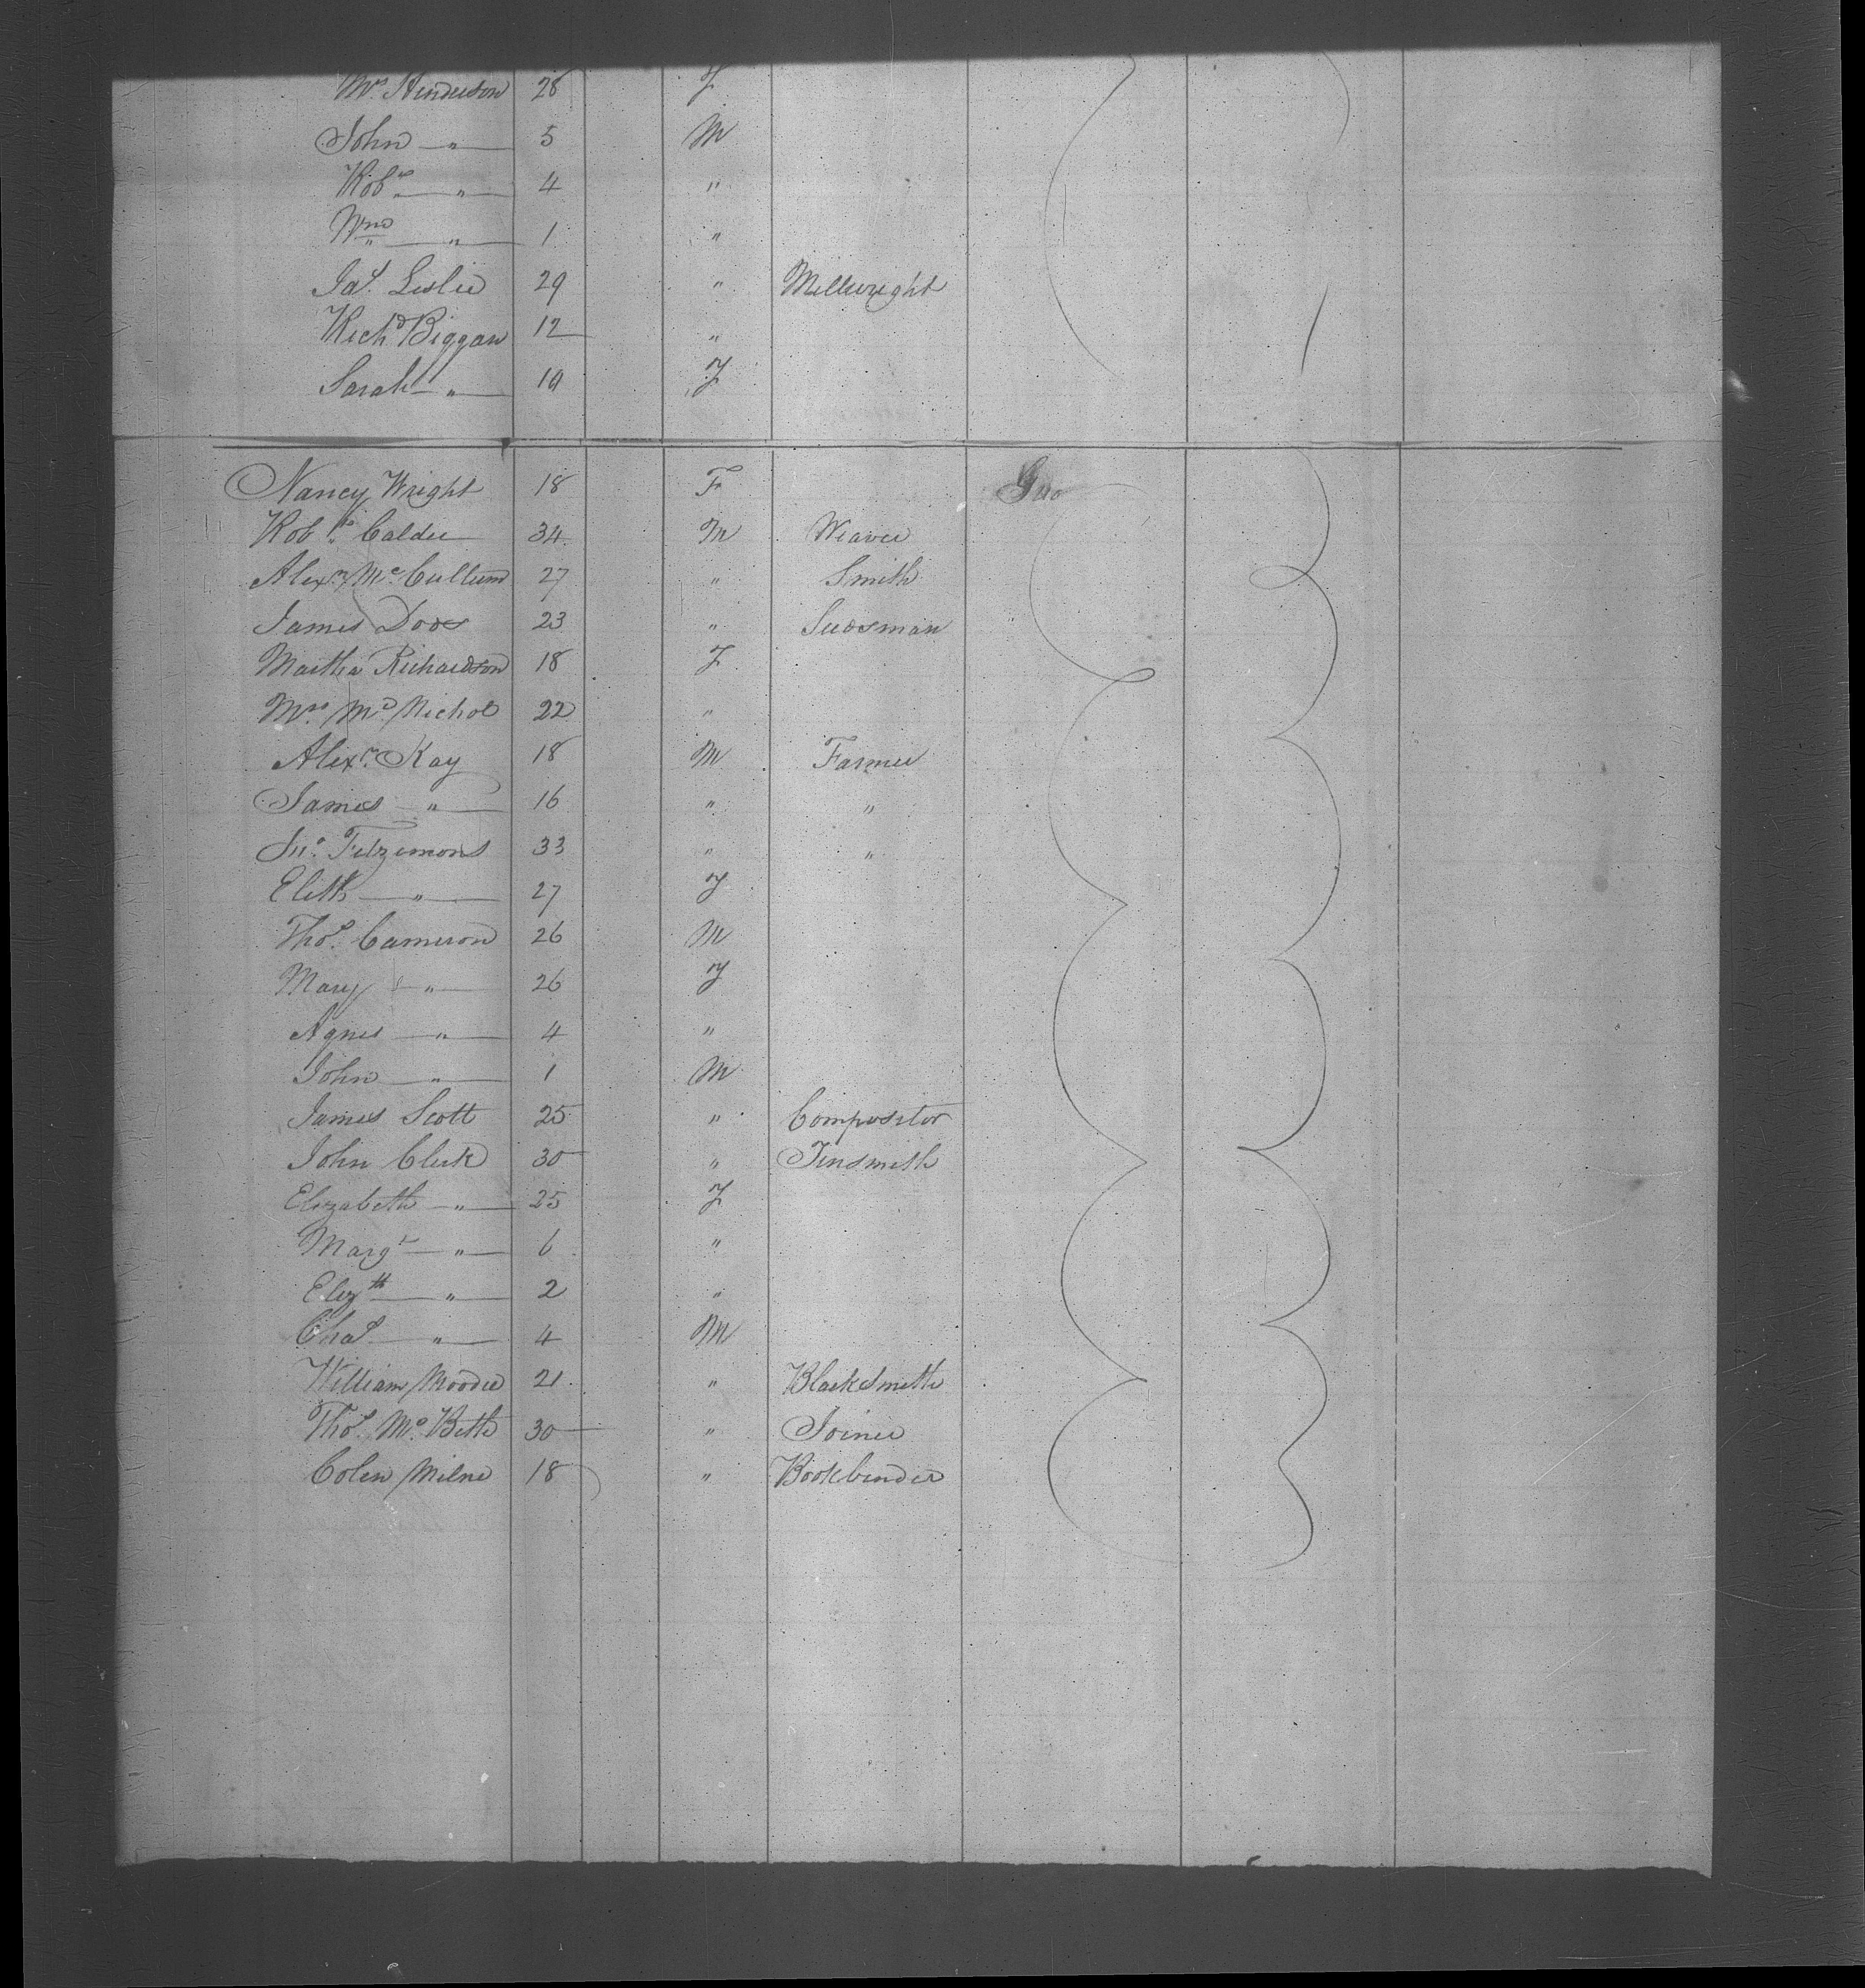 Mrs. Henderson 28 F
John — " — 5 M
Robt. — " — 4 "
Wm — " — 1 "
Jas. Leslie 29 " Millwright
Richd. Biggar 12 "
Sarah — " — 19 F
Nancy Wright 18 F
Robt. Calder 34 M Weaver
Alexr. McCullum 27 " Smith
James Dods 23 " Seedsman
Martha Richardson 18 F
Mrs. McNichol 22 "
Alexr. Kay 18 M Farmer
James — " — 16 " "
Jno. Fitzsimons 33 " "
Elith — " — 27 F
Thos. Cameron 26 M
Mary — " — 26 F
Agnes — " — 4 "
John — " — 1 M
James Scott 25 " Compositor
John Clerk 30 " Tinsmith
Elizabeth — " — 25 F
Margt — " — 6 "
Elizth — " — 2 "
Chas — " — 4 M
William Moodie 21 " BlackSmith
Thos. McBeth 30 " Joiner
Colin Milne 18 " Bookbinder